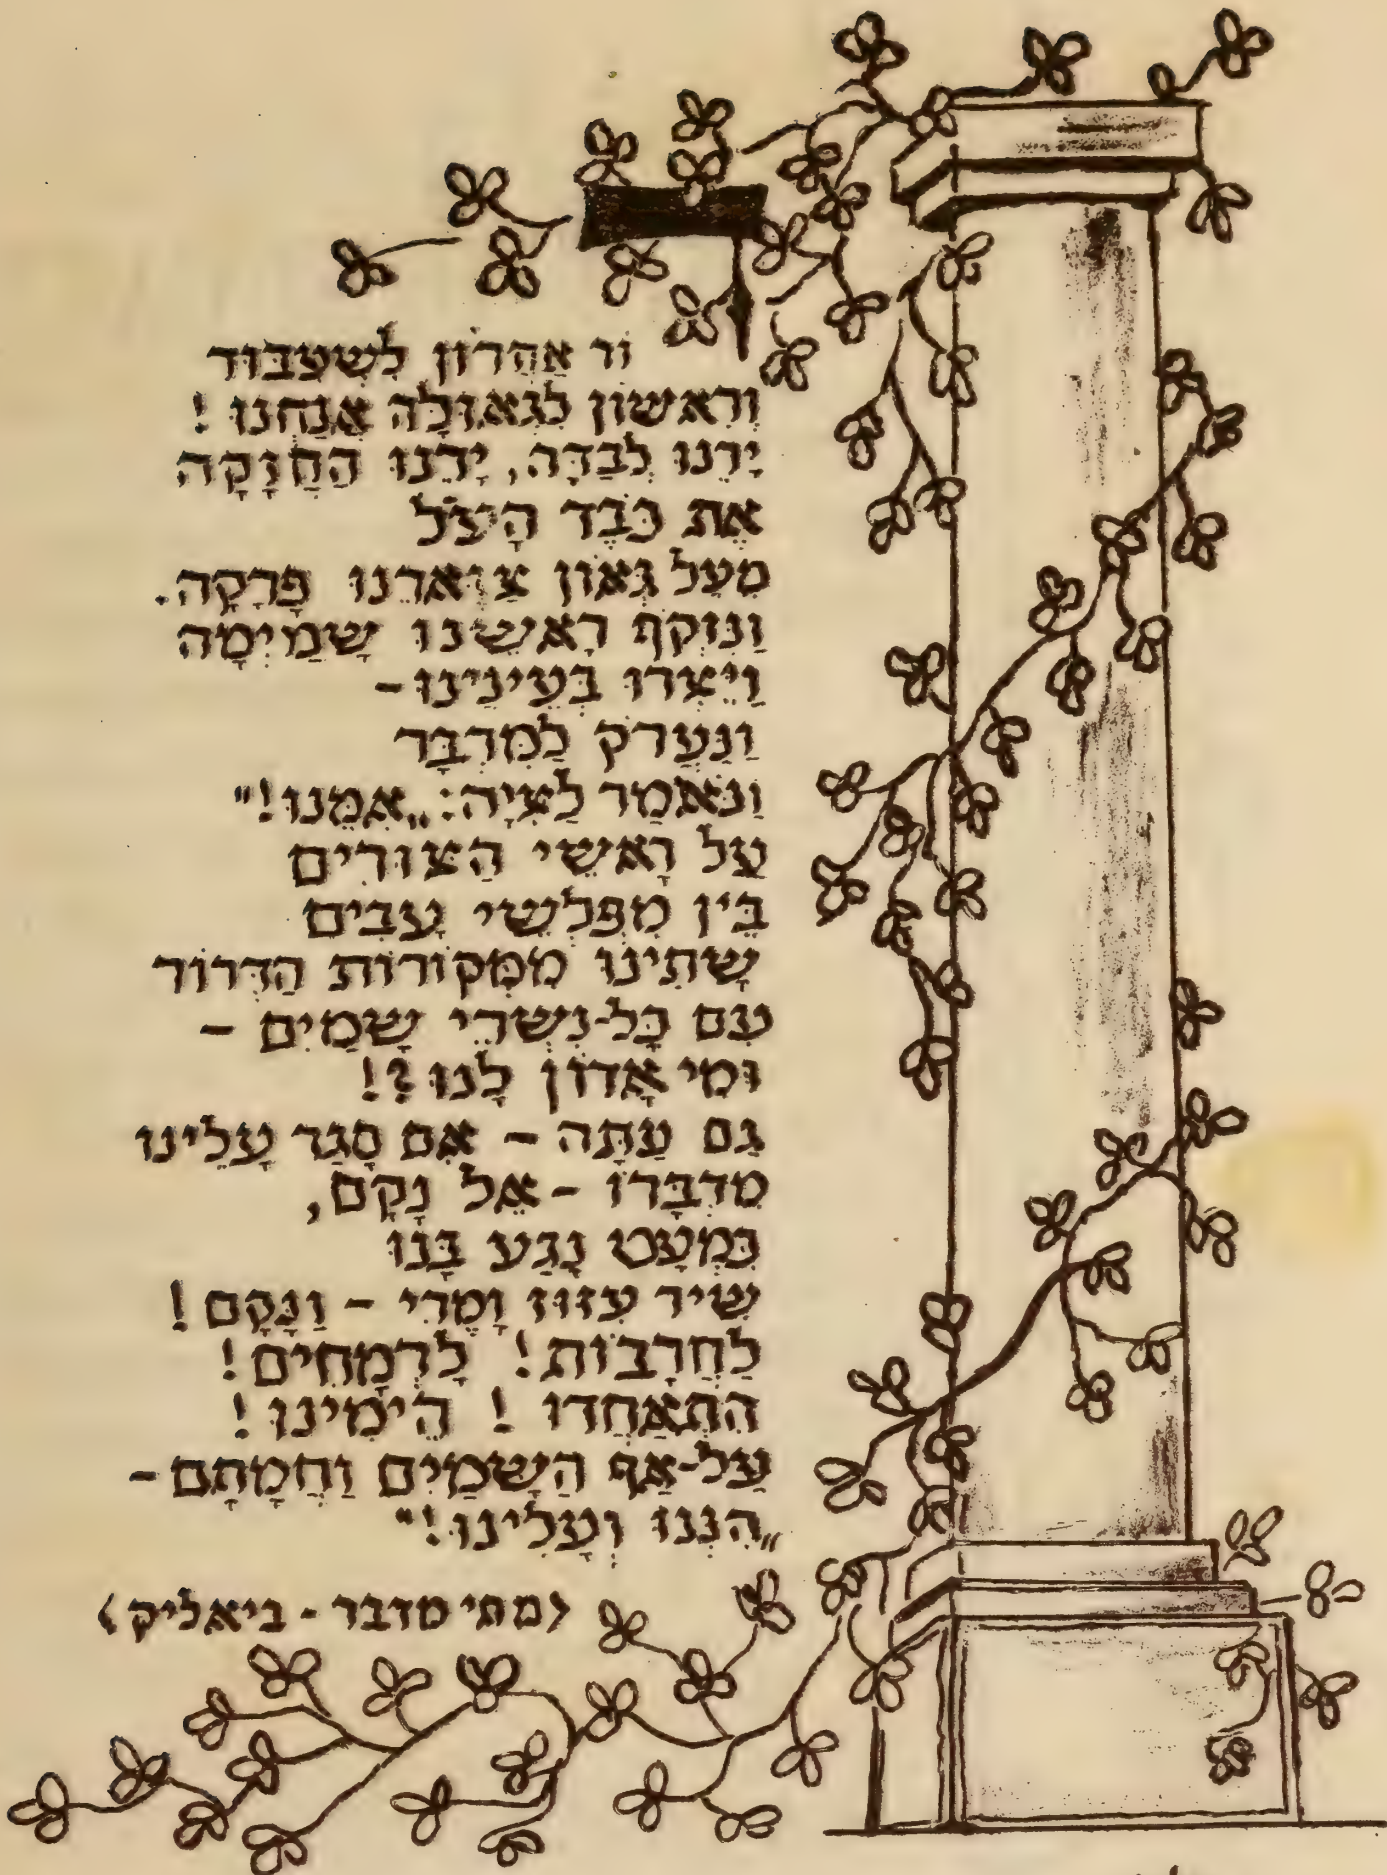 דוֹר אַחֲרוֹן לְשִׁעְבּוּד
וְרִאשׁוֹן לִגְאוּלָּה אֲנַחְנוּ!
יָדֵנוּ לְבַדָּהּ, יָדֵנוּ הַחֲזָקָה
אֶת כֹּבֶד הָעֹל
מֵעַל גְּאוֹן צַוָּארֵנוּ פָּרָקָה.
וַנִּזְקֹף רָאשֵׁנוּ שָׁמַיְמָה
וַיֵּצְרוּ בְּעֵינֵינוּ -
וַנַּעֲרֹק לַמִּדְבָּר
וַנֹּאמַר לַצִּיָּה: „אִמֵּנוּ!"
עַל רָאשֵׁי הַצּוּרִים
בֵּין מִפְלְשֵׂי עָבִים
שָׁתִינוּ מִמְּקוֹרוֹת הַדְּרוֹר
עִם כָּל-נִשְׁרֵי שָׁמַיִם -
וּמִי אָדוֹן לָנוּ?!
גַּם עַתָּה - אִם סָגַר עָלֵינוּ
מִדְבָּרוֹ - אֵל נָקָם,
כִּמְעַט נָגַע בָּנוּ
שִׁיר עִזּוּז וָמֶרִי - וַנָּקָם!
לַחֲרָבוֹת! לָרְמָחִים!
הִתְאַחֲדוּ! הֵימִינוּ!
עַל-אַף הַשָּׁמַיִם וַחֲמָתָם -
„הִנְנוּ וְעָלִינוּ!"
(מתי מדבר - ביאליק)